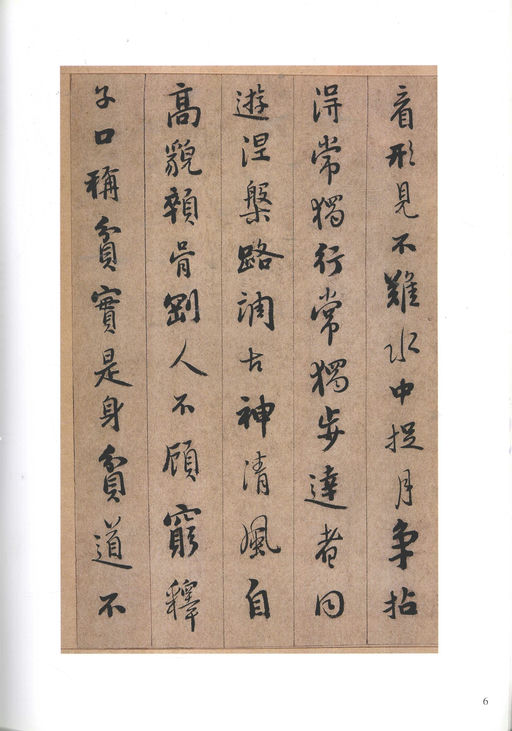 看形見不難水中捉月爭拈
得常獨行常獨步達者同
遊涅槃路調古神清風自
高貌顇骨剛人不顧窮釋
子口稱貧實是身貧道不
6